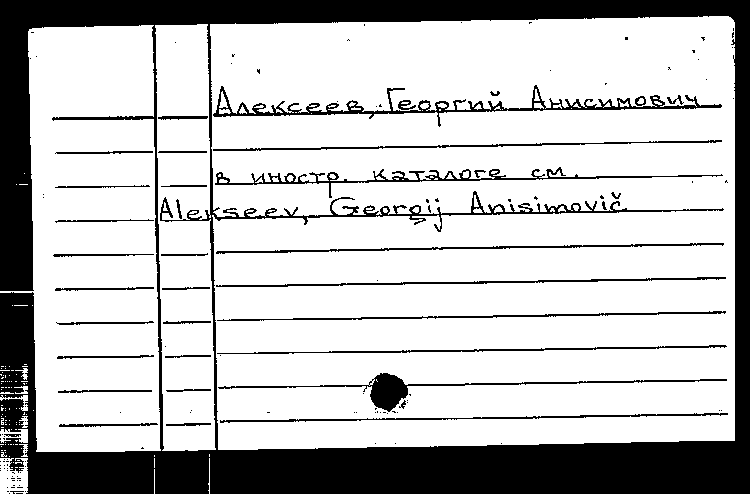 Алексеев, Георгий Анисимович
в иностр. каталоге см.
Alekseev, Georgij Anisimovič